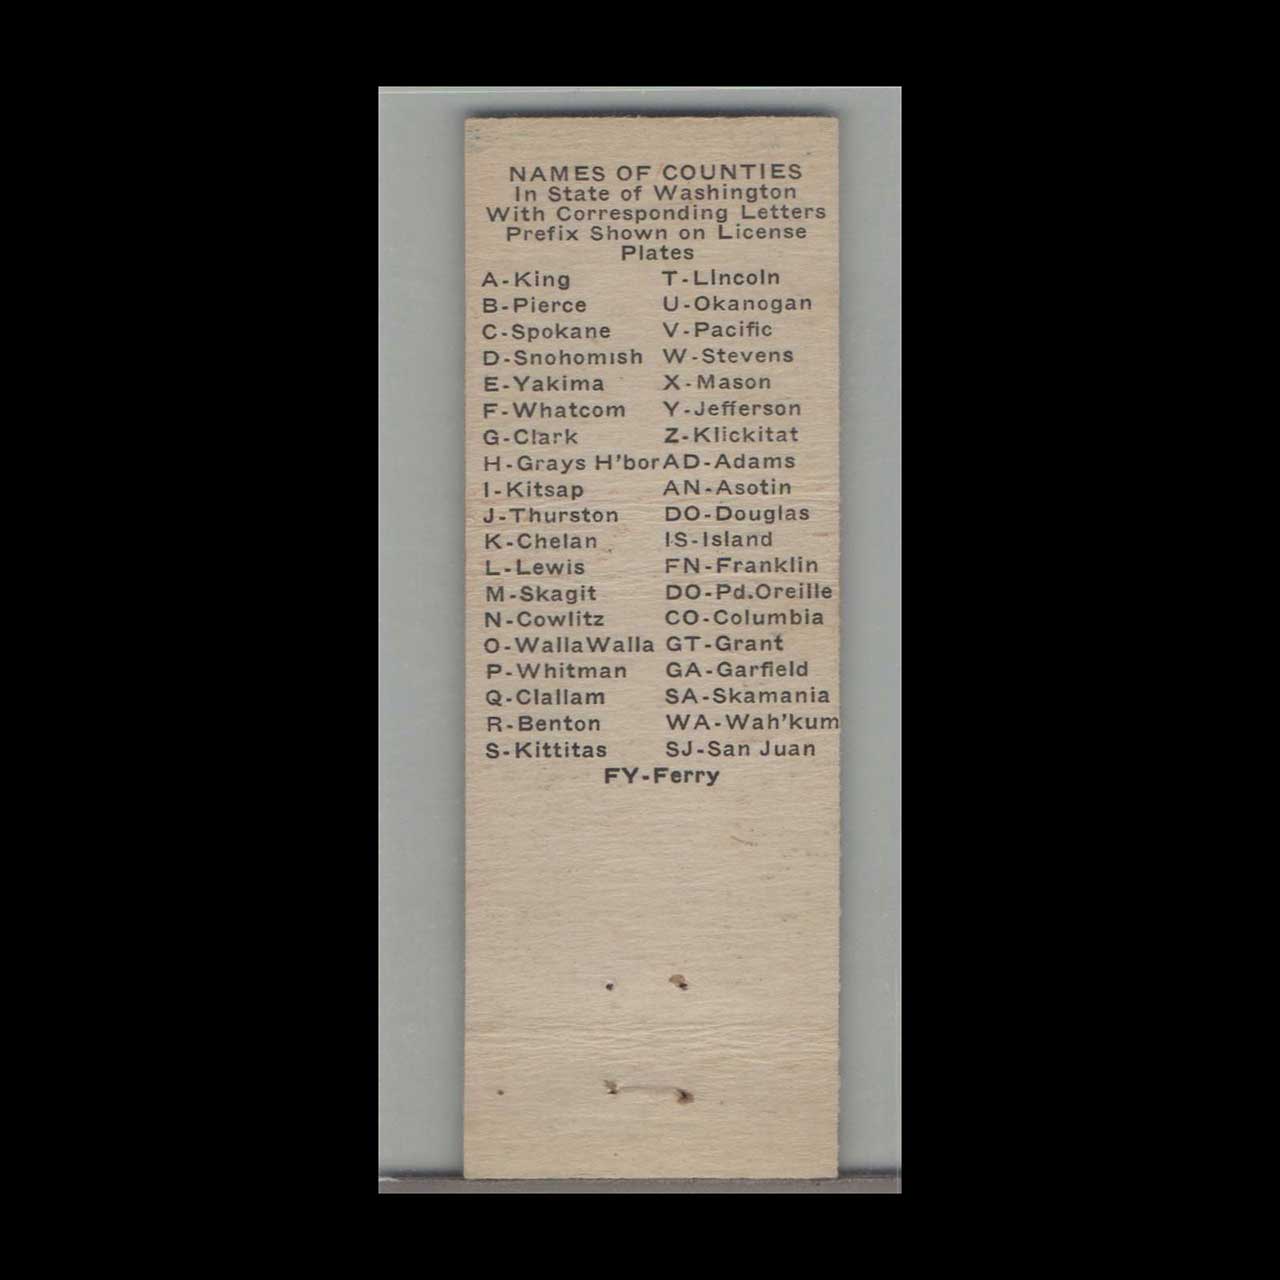 NAMES OF COUNTIES
In State of Washington
With Corresponding Letters
Prefix Shown on License
Plates
A-King T-LIncoln
B-Pierce U-Okanogan
C-Spokane V-Pacific
D-Snohomish W-Stevens
E-Yakima X-Mason
F-Whatcom Y-Jefferson
G-Clark Z-Klickitat
H-Grays H'bor AD-Adams
I-Kitsap AN-Asotin
J-Thurston DO-Douglas
K-Chelan IS-Island
L-Lewis FN-Franklin
M-Skagit DO-Pd.Oreille
N-Cowlitz CO-Columbia
O-WallaWalla GT-Grant
P-Whitman GA-Garfield
Q-Clallam SA-Skamania
R-Benton WA-Wah'kum
S-Kittitas SJ-San Juan
FY-Ferry